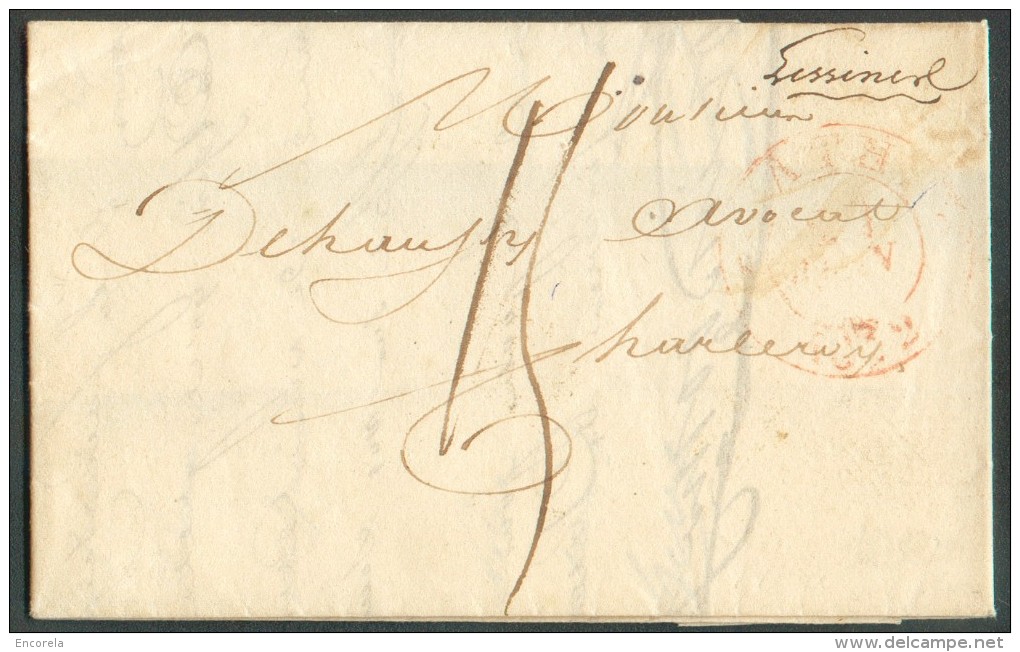 Lessines
Monsieur
Dehaussy avocat
Charleroy
15
ATH
Encorela
www.delcampe.net